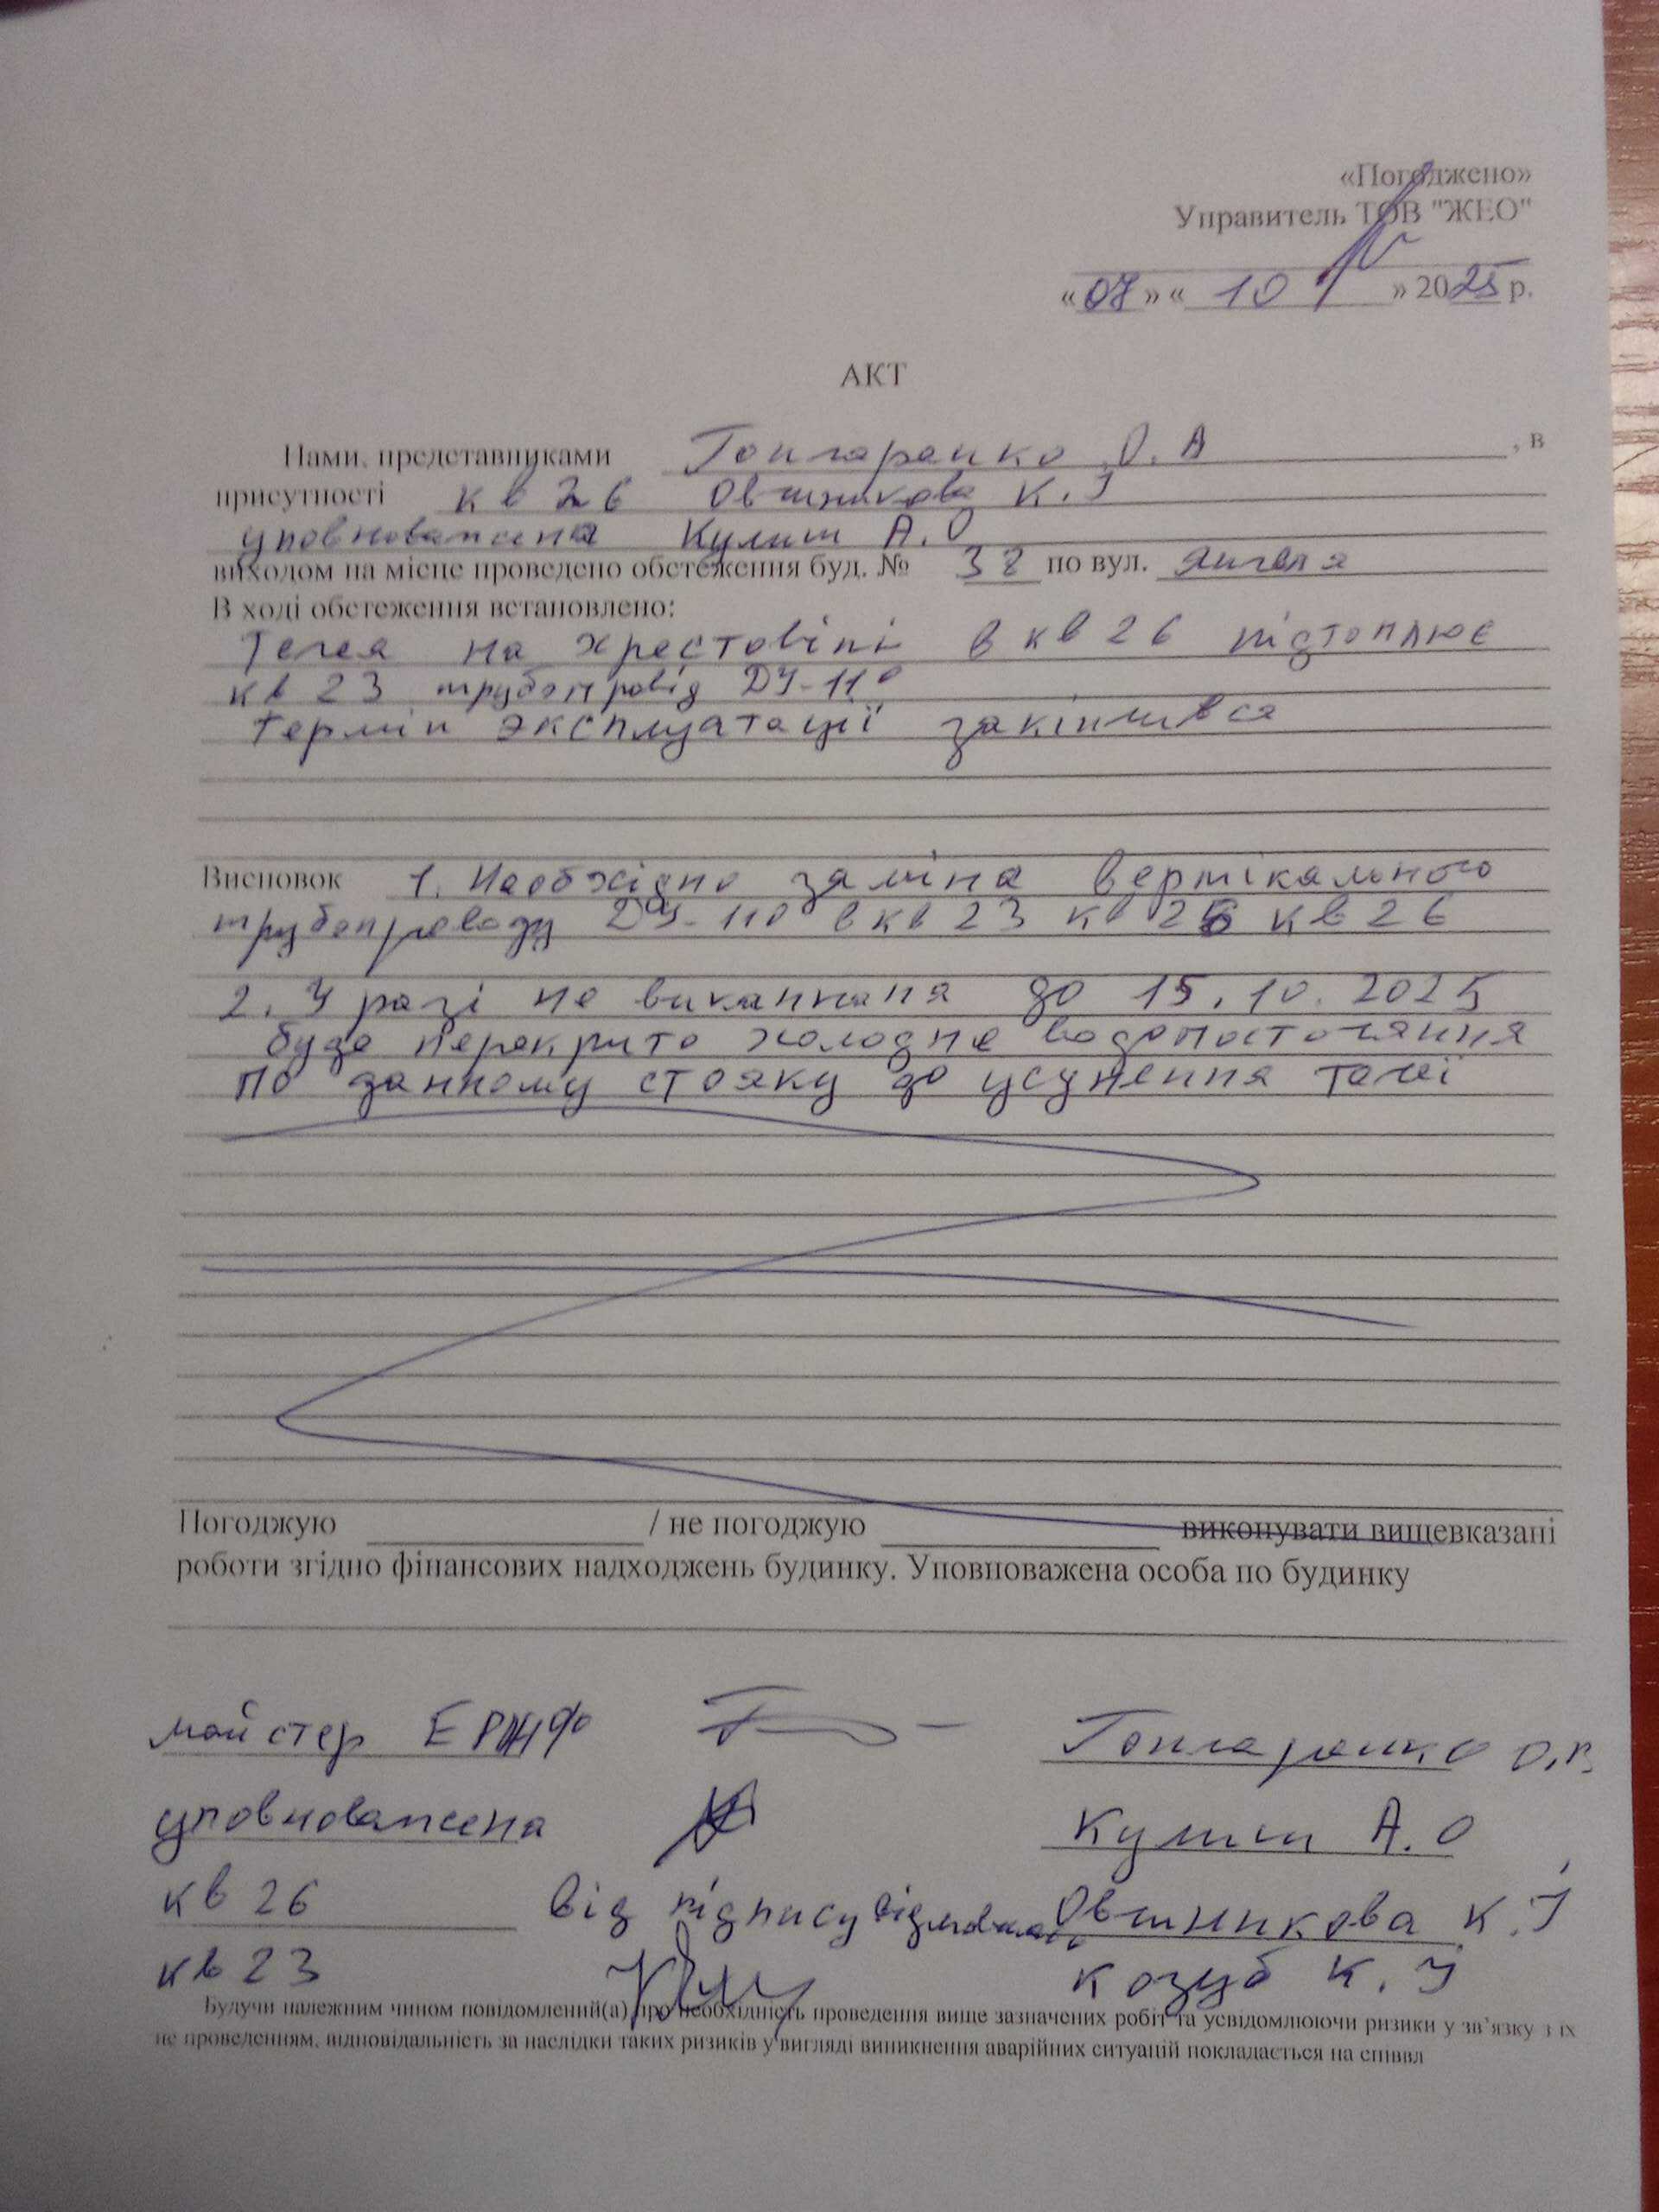 «Погоджено»
Управитель ТОВ "ЖЕО"
«07» « 10 » 2025 р.
АКТ
Нами, представниками Гончаренко О. А , в
присутності кв 26 Овчинікова К. І
уповноважена Кулиш А. О
виходом на місце проведено обстеження буд. № по вул.
В ході обстеження встановлено:
Течея на хрестовіні в кв 26 підтоплює
кв 23 трубопровід ДУ-110
термін эксплуатації закінчився
Висновок 1. Необхідно заміна вертікального
трубопроводу ДУ-110 в кв 23 кв 26 кв 26
2. У разі не виканнаня до 15.10.2025
буде перекрито холодне водопосточання
по данному стояку до усунення течеї
Погоджую / не погоджую виконувати вищевказані
роботи згідно фінансових надходжень будинку. Уповноважена особа по будинку
майстер Гончаренко О.А.
уповноважена Кулиш А. О
кв 26 від підпису відмовилась Овчинникова К. І
кв 23 Козуб К. І
Будучи належним чином повідомлений(а) про необхідність проведення вище зазначених робіт та усвідомлюючи ризики у зв’язку з їх
не проведенням, відповідальність за наслідки таких ризиків у вигляді виникнення аварійних ситуацій покладається на співвл